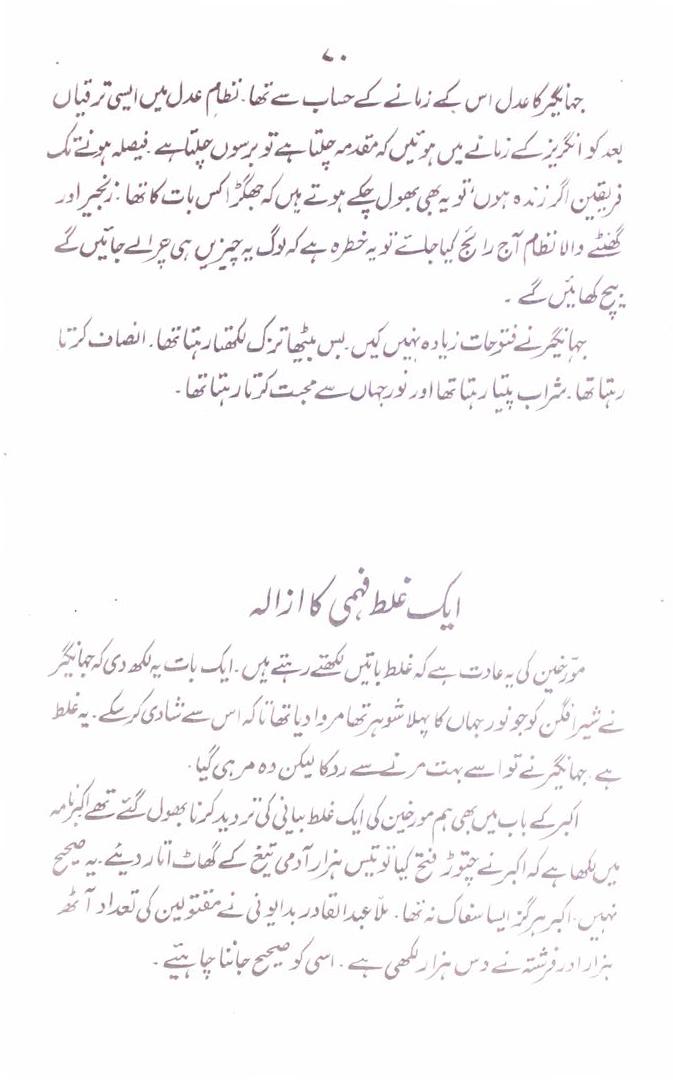 ۷۰
جہانگیر کا عدل اس کے زمانے کے حساب سے تھا۔ نظامِ عدل میں ایسی ترقیاں
بعد کو انگریز کے زمانے میں ہوئیں کہ مقدمہ چلتا ہے تو برسوں چلتا ہے۔ فیصلہ ہونے تک
فریقین اگر زندہ ہوں، تو یہ بھی بھول چکے ہوتے ہیں کہ جھگڑا کس بات کا تھا۔ زنجیر اور
گھنٹے والا نظام آج رائج کیا جائے تو یہ خطرہ ہے کہ لوگ یہ چیزیں ہی چرا لے جائیں گے
بیچ کھائیں گے ۔
جہانگیر نے فتوحات زیادہ نہیں کیں۔ بس بیٹھا تزک لکھتا رہتا تھا۔ انصاف کرتا
رہتا تھا۔ شراب پیتا رہتا تھا اور نور جہاں سے محبت کرتا رہتا تھا۔
ایک غلط فہمی کا ازالہ
مورّخین کی یہ عادت ہے کہ غلط باتیں لکھتے رہتے ہیں۔ ایک بات یہ لکھ دی کہ جہانگیر
نے شیر افگن کو جو نور جہاں کا پہلا شوہر تھا مروا دیا تھا تاکہ اس سے شادی کر سکے۔ یہ غلط
ہے۔ جہانگیر نے تو اسے بہت مرنے سے روکا لیکن وہ مر ہی گیا۔
اکبر کے باب میں بھی ہم مورخین کی ایک غلط بیانی کی تردید کرنا بھول گئے تھے اکبرنامہ
میں لکھا ہے کہ اکبر نے چتوڑ فتح کیا تو تیس ہزار آدمی تیغ کے گھاٹ اتار دیئے۔ یہ صحیح
نہیں۔ اکبر ہرگز ایسا سفاک نہ تھا۔ ملا عبدالقادر بدایونی نے مقتولین کی تعداد آٹھ
ہزار اور فرشتہ نے دس ہزار لکھی ہے ۔ اسی کو صحیح جاننا چاہئیے ۔